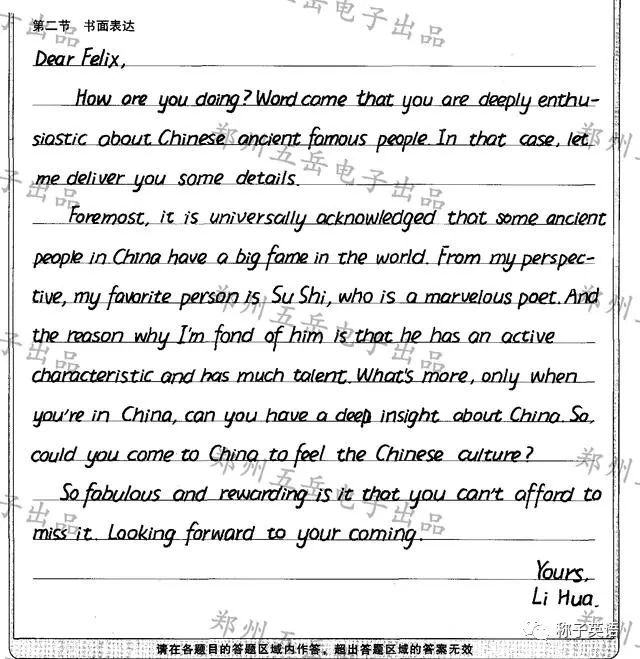 第二节 书面表达
Dear Felix,
How are you doing? Word come that you are deeply enthu-
siastic about Chinese ancient famous people. In that case, let
me deliver you some details.
Foremost, it is universally acknowledged that some ancient
people in China have a big fame in the world. From my perspec-
tive, my favorite person is Su Shi, who is a marvelous poet. And
the reason why I'm fond of him is that he has an active
characteristic and has much talent. What's more, only when
you're in China, can you have a deep insight about China. So,
could you come to China to feel the Chinese culture?
So fabulous and rewarding is it that you can't afford to
miss it. Looking forward to your coming.
Yours,
Li Hua.
郑州五岳电子出品
称子英语
请在各题目的答题区域内作答，超出答题区域的答案无效